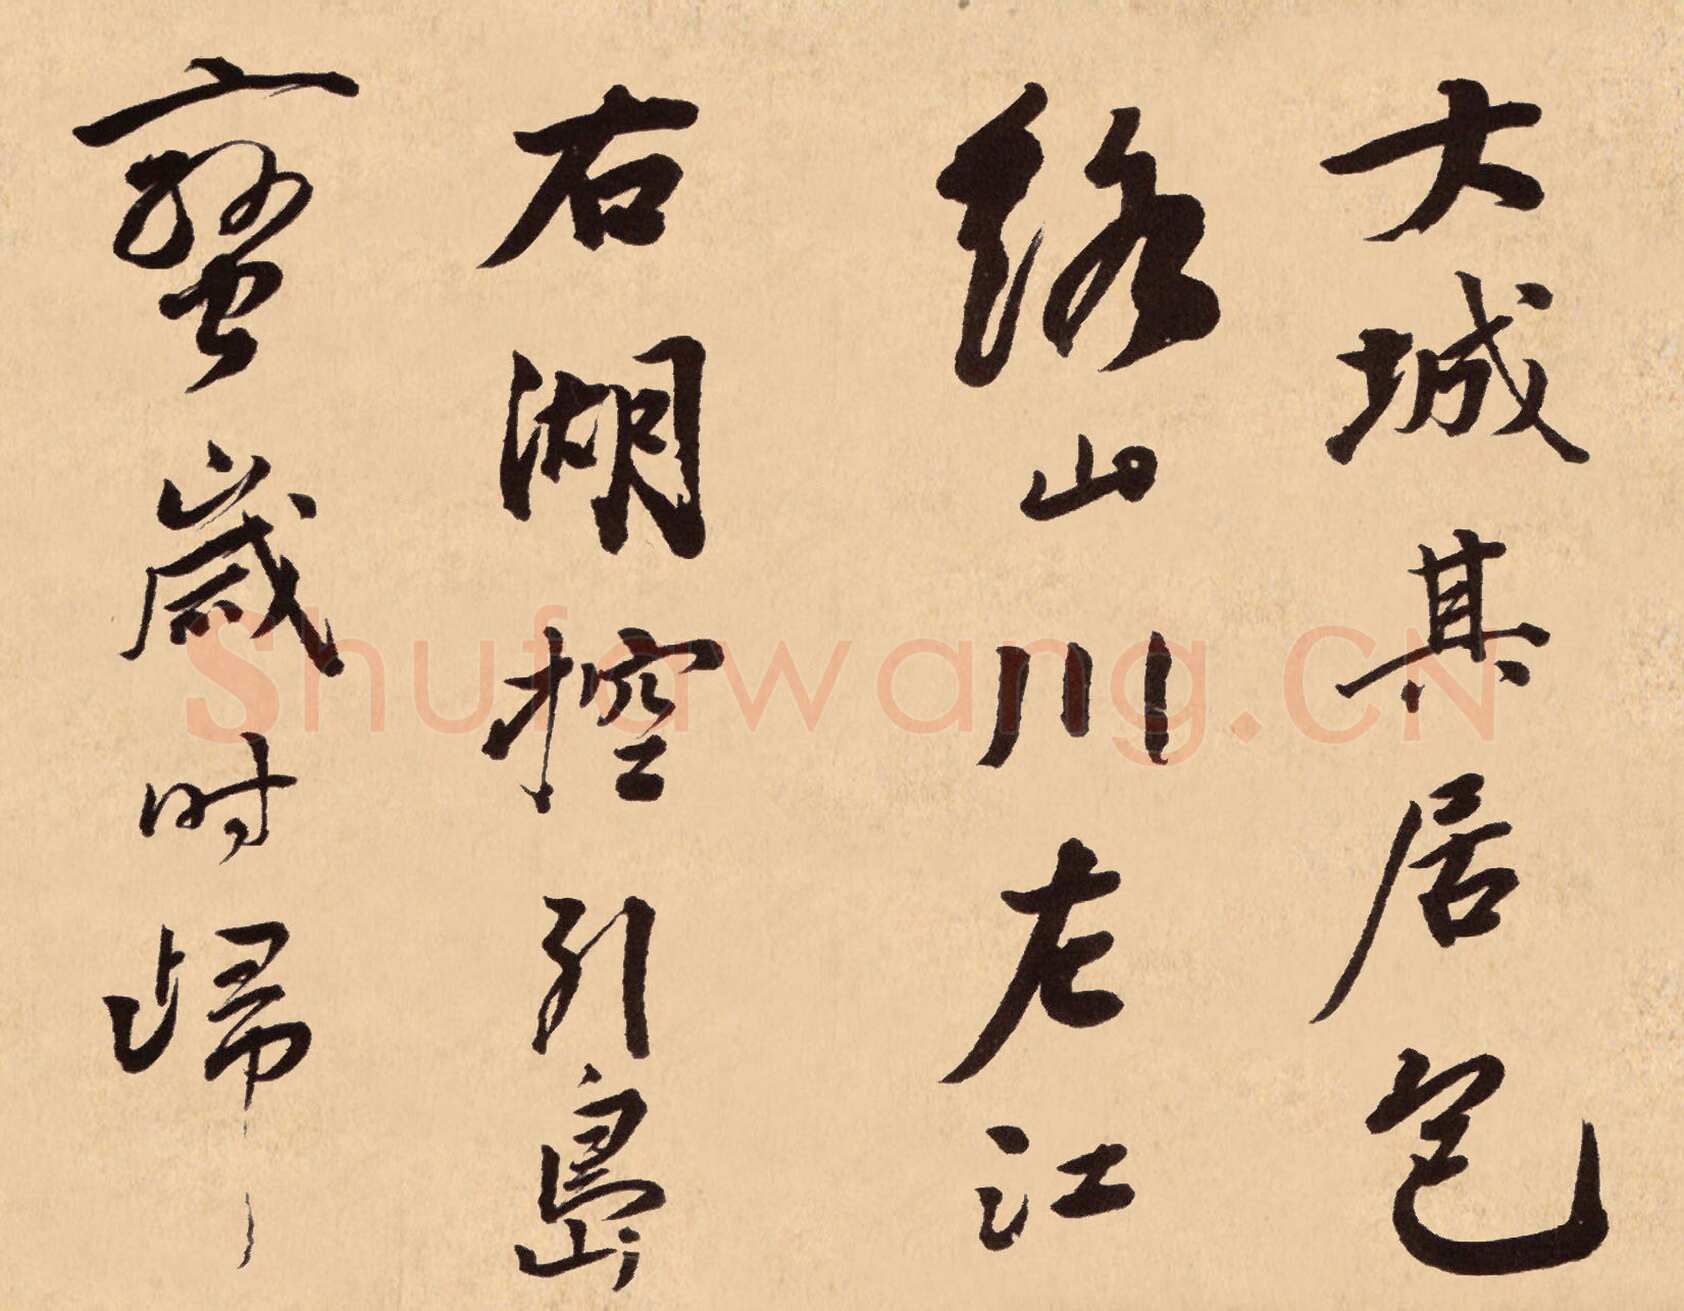 大城其居包
络山川左江
右湖控引島
蛮歳时歸
Shufawang.CN